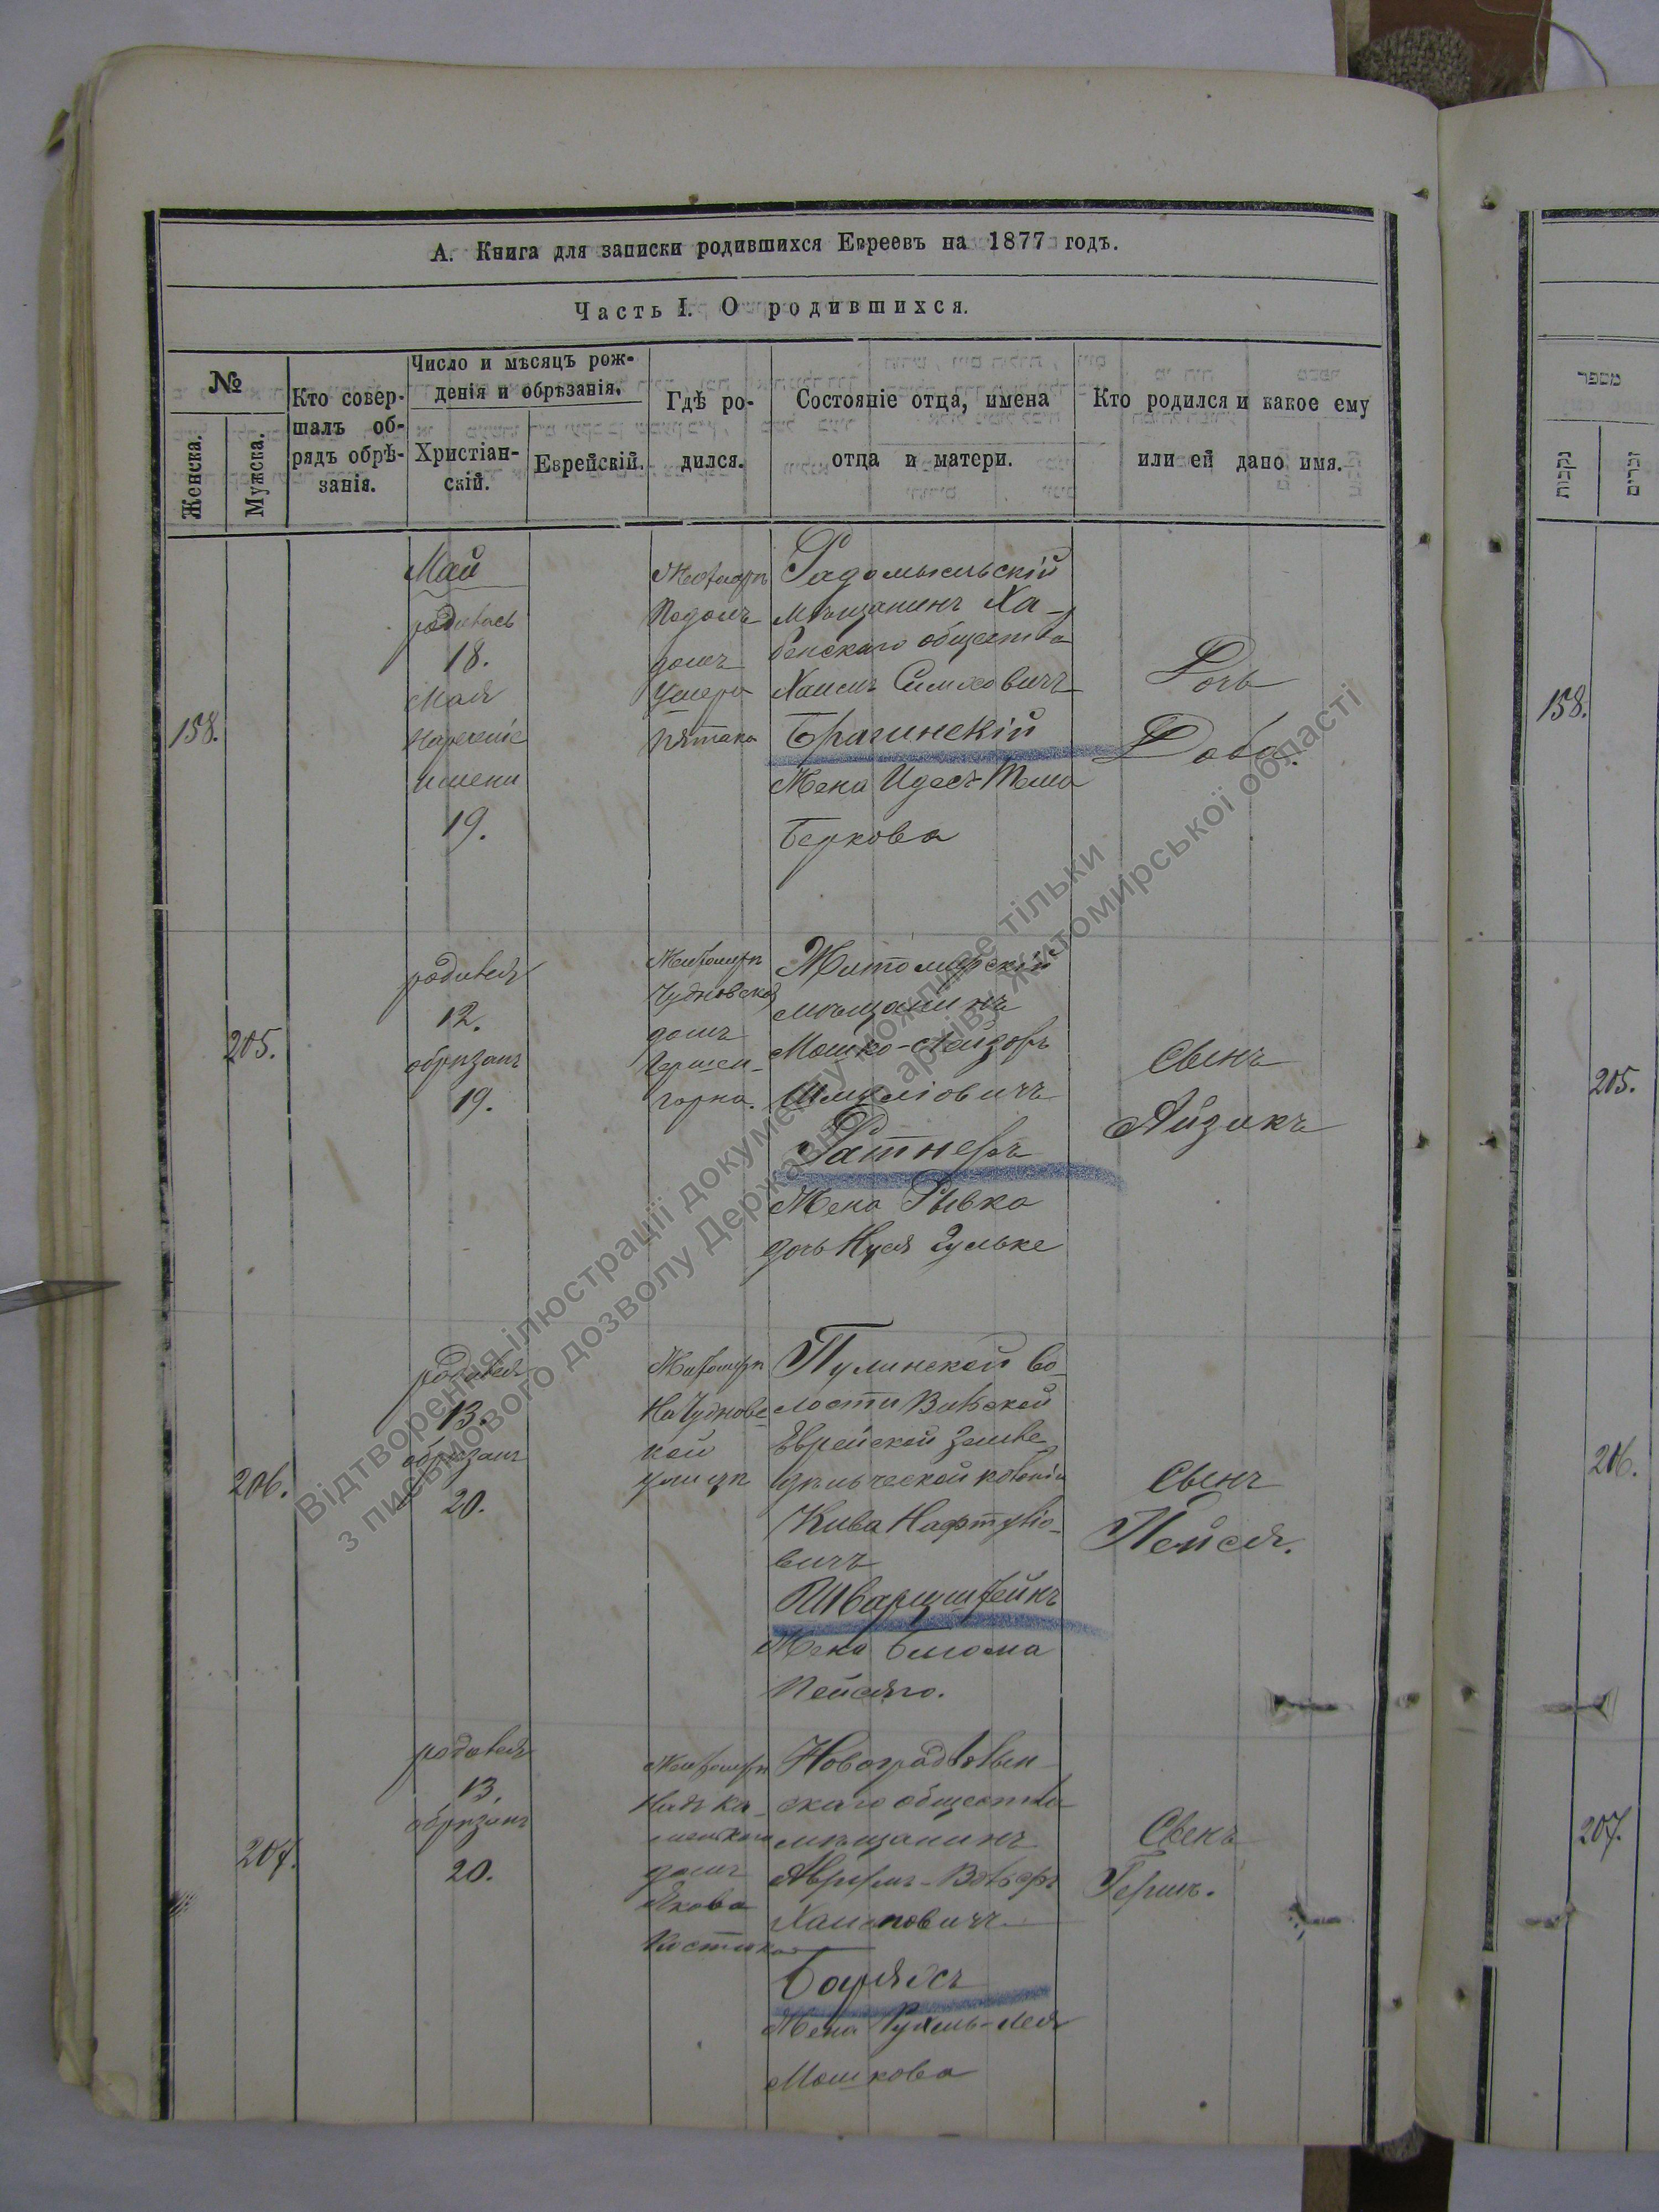 А. Книга для записки родившихся Евреевъ на 1877 годъ.
Часть I. О родившихся.
№
Женска.
Мужска.
Кто совер-
шалъ об-
рядъ обрѣ-
занія.
Число и мѣсяцъ рож-
денія и обрѣзанія.
Христіан-
скій.
Еврейскій.
Гдѣ ро-
дился.
Состояніе отца, имена
отца и матери.
Кто родился и какое ему
или ей дано имя.
158.
Май
родилась
18.
Мая
Наречение
имени
19.
Подолъ
домъ
Радомысльскій
мѣщанинъ Ха-
бенскаго общества
Хаимъ Симховичъ
Брагинскій
Жена Идесъ
Беркова
Дочь
Доба.
205.
родился
12.
обрѣзанъ
19.
Чудновской
домъ
Житомирскій
мѣщанинъ
Мошко-Лейзоръ
Шмуліовичъ
Ратнеръ
Жена Рывка
дочь Нуся
Сынъ
Айзикъ
206.
родился
13.
обрѣзанъ
20.
На Чуднов-
кой
улицѣ
Пулинской во-
лости
Еврейской Земле-
дѣльческой колоніи
Кива Нафтуліо-
вичъ
Шварцштейнъ
Жена Блюма
Пейсяго.
Сынъ
Пейся.
207.
родился
13.
обрѣзанъ
20.
домъ
Якова
скаго общества
мѣщанинъ
Аврумъ-Вольфъ
Жена Рухель-Лея
Мошкова
Сынъ
Гершъ.
מספר
נקבות
זכרים
158.
205.
206.
207.
Відтворення-ілюстрації документу можливе тільки
з письмового дозволу Державного архіву Житомирської області